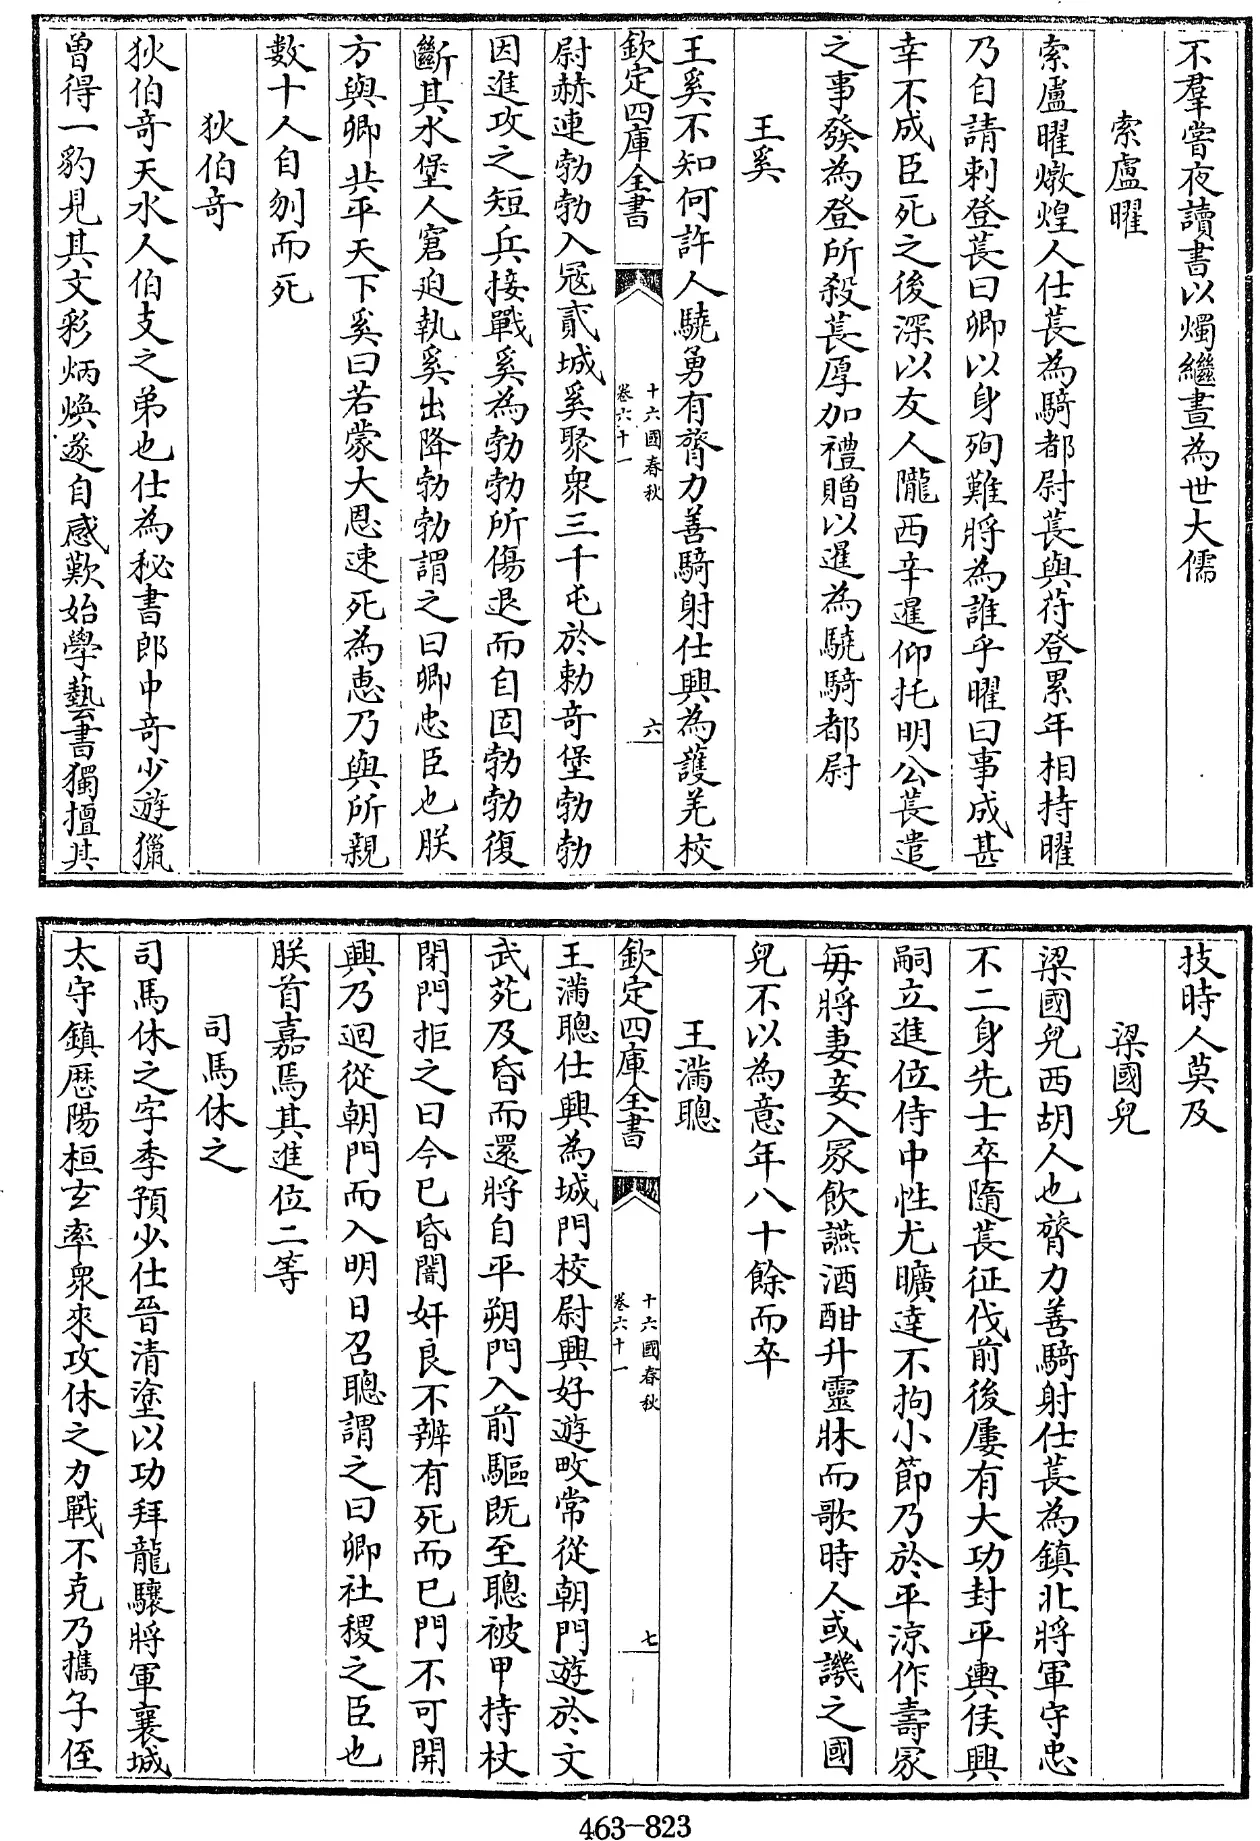 不羣嘗夜讀書以燭繼晝為世大儒
索盧曜
索盧曜燉煌人仕萇為騎都尉萇與苻登累年相持曜
乃自請刺登萇曰卿以身殉難將為誰乎曜曰事成甚
幸不成臣死之後深以友人隴西辛暹仰托明公萇遣
之事發為登所殺萇厚加禮贈以暹為驍騎都尉
王奚
王奚不知何許人驍勇有膂力善騎射仕興為護羌校
欽定四庫全書
十六國春秋
卷六十一
六
尉赫連勃勃入寇貳城奚聚衆三千屯於勅奇堡勃勃
因進攻之短兵接戰奚為勃勃所傷退而自固勃勃復
斷其水堡人窘迫執奚出降勃勃謂之曰卿忠臣也朕
方與卿共平天下奚曰若蒙大恩速死為惠乃與所親
數十人自刎而死
狄伯奇
狄伯奇天水人伯支之弟也仕為秘書郎中奇少遊獵
曾得一豹見其文彩炳煥遂自感歎始學藝書獨擅其
技時人莫及
梁國兒
梁國兒西胡人也膂力善騎射仕萇為鎮北將軍守忠
不二身先士卒隨萇征伐前後屢有大功封平輿侯興
嗣立進位侍中性尤曠達不拘小節乃於平涼作壽冢
每將妻妾入冢飲讌酒酣升靈牀而歌時人或譏之國
兒不以為意年八十餘而卒
王滿聰
欽定四庫全書
十六國春秋
卷六十一
七
王滿聰仕興為城門校尉興好遊畋常從朝門遊於文
武苑及昏而還將自平朔門入前驅既至聰被甲持杖
閉門拒之曰今已昏闇奸良不辨有死而已門不可開
興乃迴從朝門而入明日召聰謂之曰卿社稷之臣也
朕首嘉焉其進位二等
司馬休之
司馬休之字季預少仕晉清塗以功拜龍驤將軍襄城
太守鎮厯陽桓玄率衆來攻休之力戰不克乃攜子侄
463-823